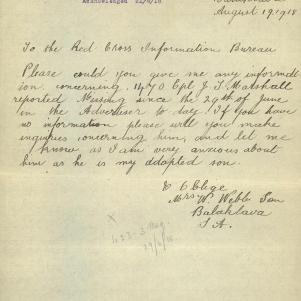 Acknowledged 22/8/18
August 19. 1918
To the Red Cross Information Bureau
Please could you give me any informat
ion concerning Cpl J. T. Marshall
reported Missing since the 29th of June
in the Advertiser to day. If you have
no information please will you make
inquiries concerning him, and let me
know as I am very anxious about
him as he is my adopted son.
Oblige
Mrs W. Webb Sen
Balaklava
S. A.